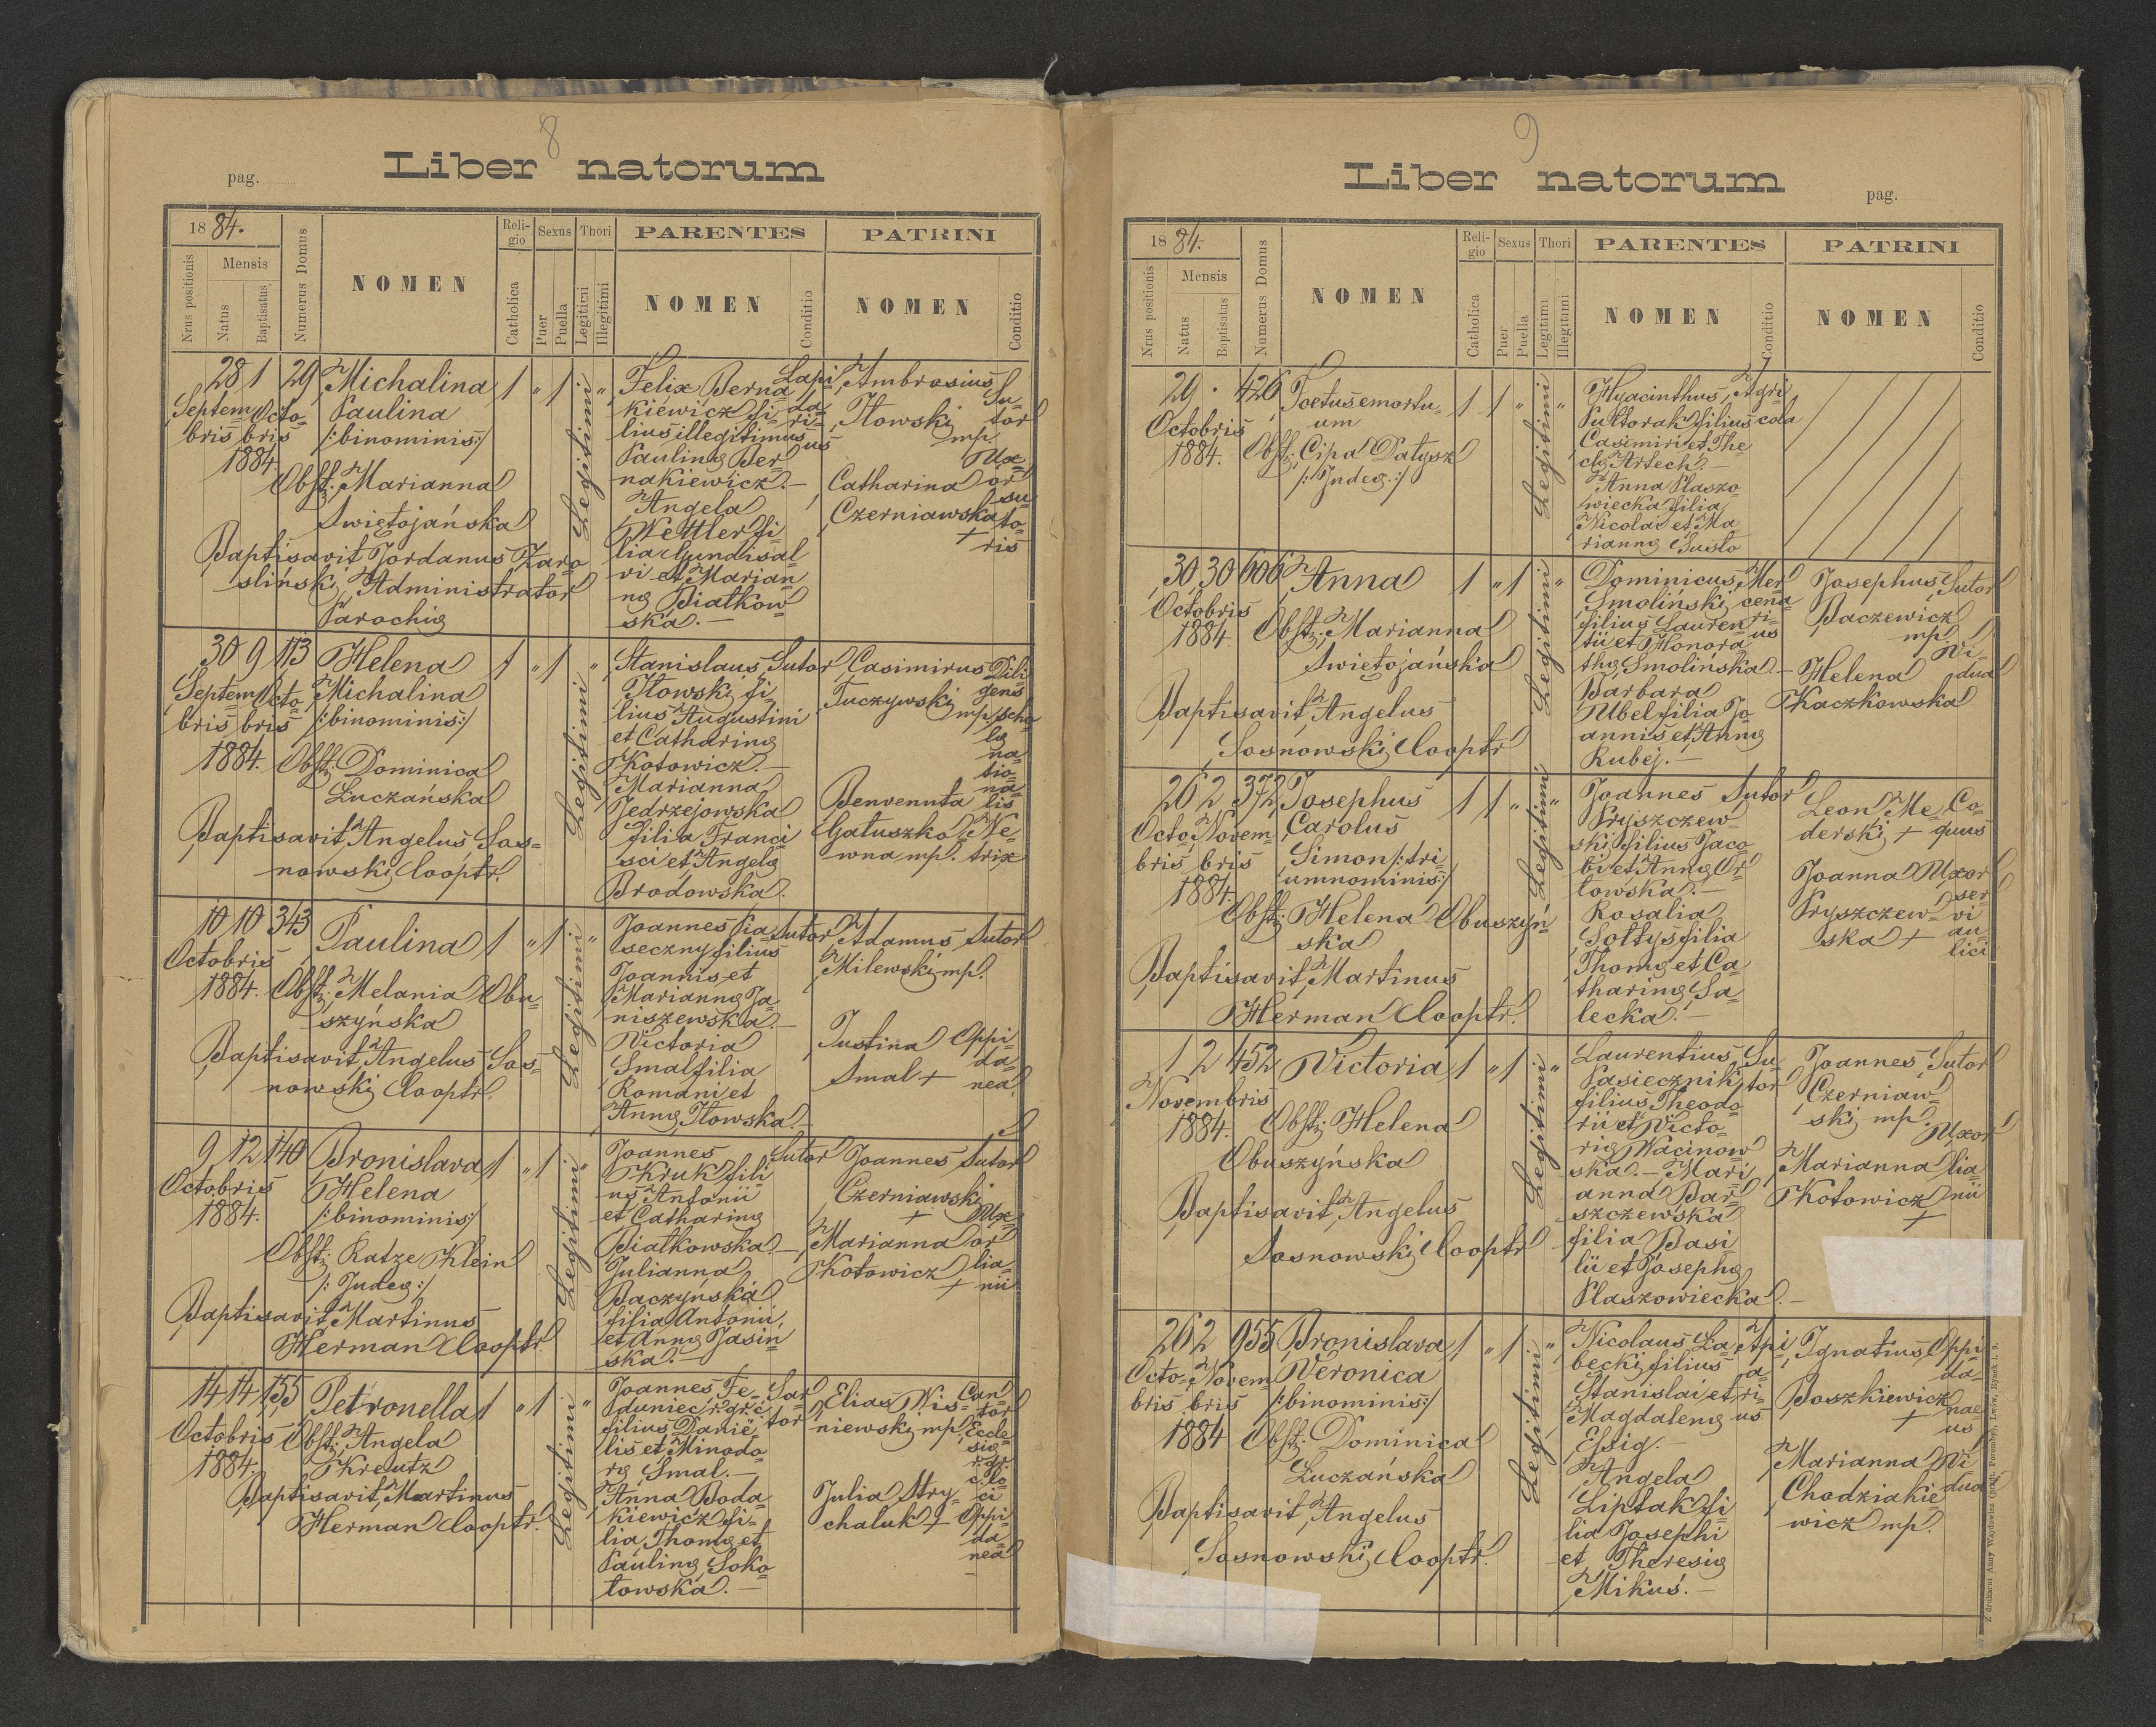 8
Liber natorum
pag.
1884.
Nrus positionis
Mensis
Natus
Baptisatus
Numerus Domus
NOMEN
Reli-
gio
Catholica
Sexus
Puer
Puella
Thori
Legitimi
Illegitimi
PARENTES
NOMEN
Conditio
PATRINI
NOMEN
Conditio
28 1 29 Michalina 1 " 1 "
Septem Octo=
bris bris
1884.
Paulina
/:binominis:/
Obst: Marianna
Świętojańska
Baptisavit Jordanus
sliński, Administrator
Parochię
Legitimi
Felix Berna=
kiewicz fi=
lius illegitimus
Paulinę Ber=
nakiewicz.—
Angela
Wettler fi=
lia Gundisal=
vi et Marian=
nę Białkow=
ska.—
Lapi=
da=
ri=
us
Ambrosius
Iłowski
mp.
Su=
tor
Catharina
Czerniawska
+
Ux=
or
su=
to=
ris
30 9 113 Helena 1 " 1 "
Septem Octo=
bris bris
1884.
Michalina
/:binominis:/
Obst: Dominica
Łuczańska
Baptisavit Angelus Sos=
nowski Cooptr.
Legitimi
Stanislaus Sutor
Iłowski fi=
lius Augustini
et Catharinę
Kotowicz.—
Marianna
Jędrzejowska
filia Franci=
sci et Angelę
Brodowska.
Casimirus
Tuczywski
mp.
Dili=
gens
scho=
lę
na=
tio=
na=
lis
Benvenuta
Gałuszko=
wna mp.
Ne=
trix
10 10 343 Paulina 1 " 1 "
Octobris
1884.
Obst: Melania Obu=
szyńska
Baptisavit Angelus Sos=
nowski Cooptr.
Legitimi
Joannes Pia=
seczny filius
Joannis et
Mariannę Ja=
niszewska.—
Victoria
Smal filia
Romani et
Annę Iłowska.—
Sutor
Adamus Sutor
Milewski mp.
Justina
Smal +
Oppi=
da=
nea
9 12 140 Bronislava 1 " 1 "
Octobris
1884.
Helena
/:binominis:/
Obst: Ratze Klein
/:Judea:/
Baptisavit Martinus
Herman Cooptr.
Legitimi
Joannes Sutor
Kruk fili=
us Antonii
et Catharinę
Białkowska.—
Julianna
Baczyńska
filia Antonii,
et Annę Jasin=
ska.—
Joannes Sutor
Czerniawski
+
Marianna
Kotowicz
+
Ux=
or
lia=
nii
14 14 155 Petronella 1 " 1 "
Octobris
1884.
Obst: Angela
Kreutz
Baptisavit, Martinus
Herman Cooptr.
Legitimi
Joannes Fe=
duniec r. gr. c.
filius Danië=
lis et Minodo=
rę Smal.—
Anna Boda=
kiewicz fi=
lia Thomę et
Paulinę Soko=
łowska.—
Sar=
tor
Elias Wis=
niewski mp.
Can=
tor
Eccle=
się
r. gr.
c. lo=
ci
Julia Stry=
chaluk +
Oppi=
da=
nea
9
Liber natorum
pag.
1884.
Nrus positionis
Mensis
Natus
Baptisatus
Numerus Domus
NOMEN
Reli-
gio
Catholica
Sexus
Puer
Puella
Thori
Legitimi
Illegitimi
PARENTES
NOMEN
Conditio
PATRINI
NOMEN
Conditio
29 . 426 Foetus emortu= 1 1 " "
um
Octobris
1884.
Obst: Cipa Datysz
/:Judea:/
Legitimi
Hyacinthus,
Półtorak filius
Casimiri et The=
clę Artech.—
Anna Płaszo=
wiecka filia
Nicolai et Ma=
riannę Susło
Agri=
cola
30 30 606 Anna 1 " 1 "
Octobris
1884.
Obst: Marianna
Świetojańska
Baptisavit, Angelus
Sosnowski, Cooptr.
Legitimi
Dominicus
Smoliński
filius Lauren=
tii et Honora=
thę Smolińska.—
Barbara
Ubel filia Jo=
annis et Annę
Kubej.—
Mer=
cena=
ri=
us
Josephus, Sutor
Baczewicz
mp.
Helena
Kaczkowska
Vi=
dua
26 2 372 Josephus 1 1 " "
Octo= Novem=
bris bris
1884.
Carolus
Simon /:tri=
umnominis:/
Obst: Helena Obuszyń=
ska
Baptisavit, Martinus
Herman Cooptr.
Legitimi
Joannes Sutor
Pryszczew=
ski filius Jaco=
bi et Annę Or=
łowska.—
Rosalia
Sołtys filia
Thomę et Ca=
tharinę Sa=
lecka.—
Leon Me=
derski +
Co=
quus
Joanna
Pryszczew=
ska +
Uxor
ser=
vi
au=
lici
1 2 452 Victoria 1 " 1 "
Novembris
1884.
Obst: Helena
Obuszyńska
Baptisavit, Angelus
Sosnowski Cooptr.
Legitimi
Laurentius,
Pasiecznik,
filius Theodo=
rii et Victo=
rię Wacinow=
ska.— Mari=
anna Bar=
szczewska
filia Basi=
lii et Josephę
Płaszowiecka.—
Su=
tor
Joannes, Sutor
Czerniaw=
ski mp.
Marianna
Kotowicz
+
Uxor
lia=
nii
26 2 955 Bronislava 1 " 1 "
Octo= Novem=
bris bris
1884
Veronica
/:binominis:/
Obst: Dominica
Łuczańska
Baptisavit, Angelus
Sosnowski, Cooptr.
Legitimi
Nicolaus Ła=
becki filius
Stanislai et
Magdalenę
Essig.—
Angela
Liptak fi=
lia Josephi
et Theresię
Mikuś.—
Api=
a=
ri=
us
Ignatius,
Boszkiewicz
+
Oppi=
da=
nae=
us
Marianna
Chodziakie=
wicz mp.
Vi=
dua
Z drukarni Anny Wajdowicz (przedt. Poremby), Lwów, Rynek l. 9.